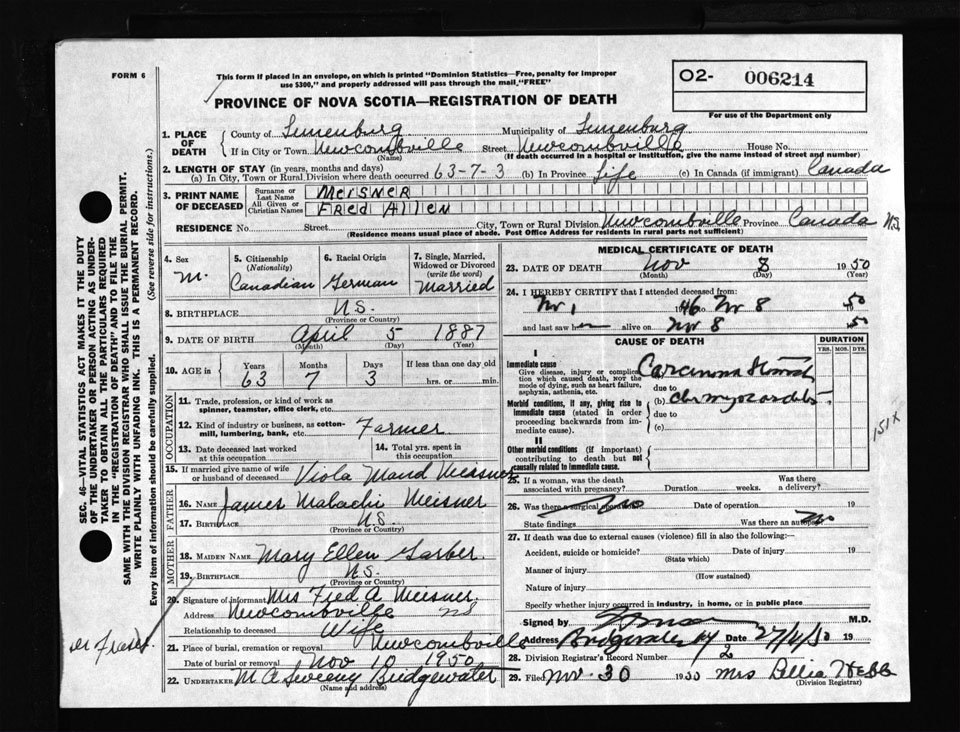 FORM 6
This form if placed in an envelope, on which is printed "Dominion Statistics—Free, penalty for improper
use $300," and properly addressed will pass through the mail "FREE"
PROVINCE OF NOVA SCOTIA—REGISTRATION OF DEATH
O2- 006214
For use of the Department only
1. PLACE OF DEATH
County of Lunenburg Municipality of Lunenburg
If in City or Town Newcombville Street Newcombville House No.
(Name) (If death occurred in a hospital or institution, give the name instead of street and number)
2. LENGTH OF STAY (in years, months and days)
(a) In City, Town or Rural Division where death occurred 63-7-3 (b) In Province Life (c) In Canada (if immigrant) Canada
3. PRINT NAME OF DECEASED
Surname or Last Name MEISNER
All Given or Christian Names FRED ALLEN
RESIDENCE No. Street City, Town or Rural Division Newcombville Province Canada N.S.
(Residence means usual place of abode. Post Office Address for residents in rural parts not sufficient)
4. Sex M.
5. Citizenship (Nationality) Canadian
6. Racial Origin German
7. Single, Married, Widowed or Divorced (write the word) Married
8. BIRTHPLACE N.S.
(Province or Country)
9. DATE OF BIRTH April 5 1887
(Month) (Day) (Year)
10. AGE in Years 63 Months 7 Days 3 If less than one day old hrs. or min.
OCCUPATION
11. Trade, profession, or kind of work as spinner, teamster, office clerk, etc.
12. Kind of industry or business, as cotton-mill, lumbering, bank, etc. Farmer
13. Date deceased last worked at this occupation
14. Total yrs. spent in this occupation
15. If married give name of wife or husband of deceased Viola Maud Meisner
FATHER
16. NAME James Malachi Meisner
17. BIRTHPLACE N.S.
(Province or Country)
MOTHER
18. MAIDEN NAME Mary Ellen Garber
19. BIRTHPLACE N.S.
(Province or Country)
20. Signature of informant Mrs Fred A Meisner
Address Newcombville NS
Relationship to deceased Wife
21. Place of burial, cremation or removal Newcombville
Date of burial or removal Nov 10 1950
22. UNDERTAKER M A Sweeny Bridgewater
(Name and address)
MEDICAL CERTIFICATE OF DEATH
23. DATE OF DEATH Nov 8 1950
(Month) (Day) (Year)
24. I HEREBY CERTIFY that I attended deceased from:
Nv 1 1946 to Nv 8 1950
and last saw him alive on Nov 8 1950
CAUSE OF DEATH
DURATION
YRS. MOS. DYS.
I
Immediate cause
Give disease, injury or complication which caused death, NOT the mode of dying, such as heart failure, asphyxia, asthenia, etc.
Carcinoma Stomach
due to
Morbid conditions, if any, giving rise to immediate cause (stated in order proceeding backwards from immediate cause).
(b) chr myocarditis
due to
(c)
II
Other morbid conditions (if important) contributing to death but not causally related to immediate cause.
151X
25. If a woman, was the death associated with pregnancy? Duration weeks. Was there a delivery?
26. Was there a surgical operation? No Date of operation 19
State findings Was there an autopsy No
27. If death was due to external causes (violence) fill in also the following:—
Accident, suicide or homicide? Date of injury 19
(State which)
Manner of injury
(How sustained)
Nature of injury
Specify whether injury occurred in industry, in home, or in public place
Signed by M.D.
Address Bridgewater Date 27/11/50 19
28. Division Registrar's Record Number 2
29. Filed Nov. 30 1950 Mrs Bellia Webb
(Division Registrar)
SEC. 46—VITAL STATISTICS ACT MAKES IT THE DUTY
OF THE UNDERTAKER OR PERSON ACTING AS UNDER-
TAKER TO OBTAIN ALL THE PARTICULARS REQUIRED
IN THE "REGISTRATION OF DEATH" AND TO FILE THE
SAME WITH THE DIVISION REGISTRAR WHO SHALL ISSUE THE BURIAL PERMIT.
WRITE PLAINLY WITH UNFADING INK. THIS IS A PERMANENT RECORD.
Every item of information should be carefully supplied. (See reverse side for instructions.)